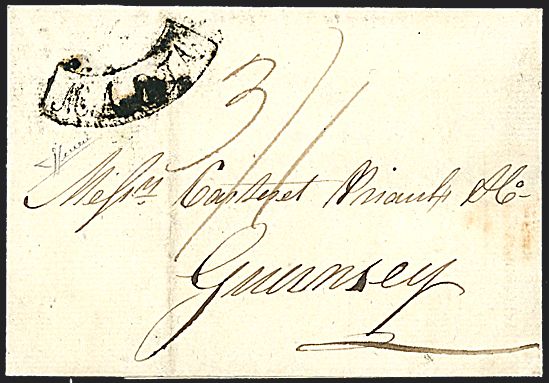 MALTA
3/1
Messrs Carteret Priaulx & Co
Guernsey